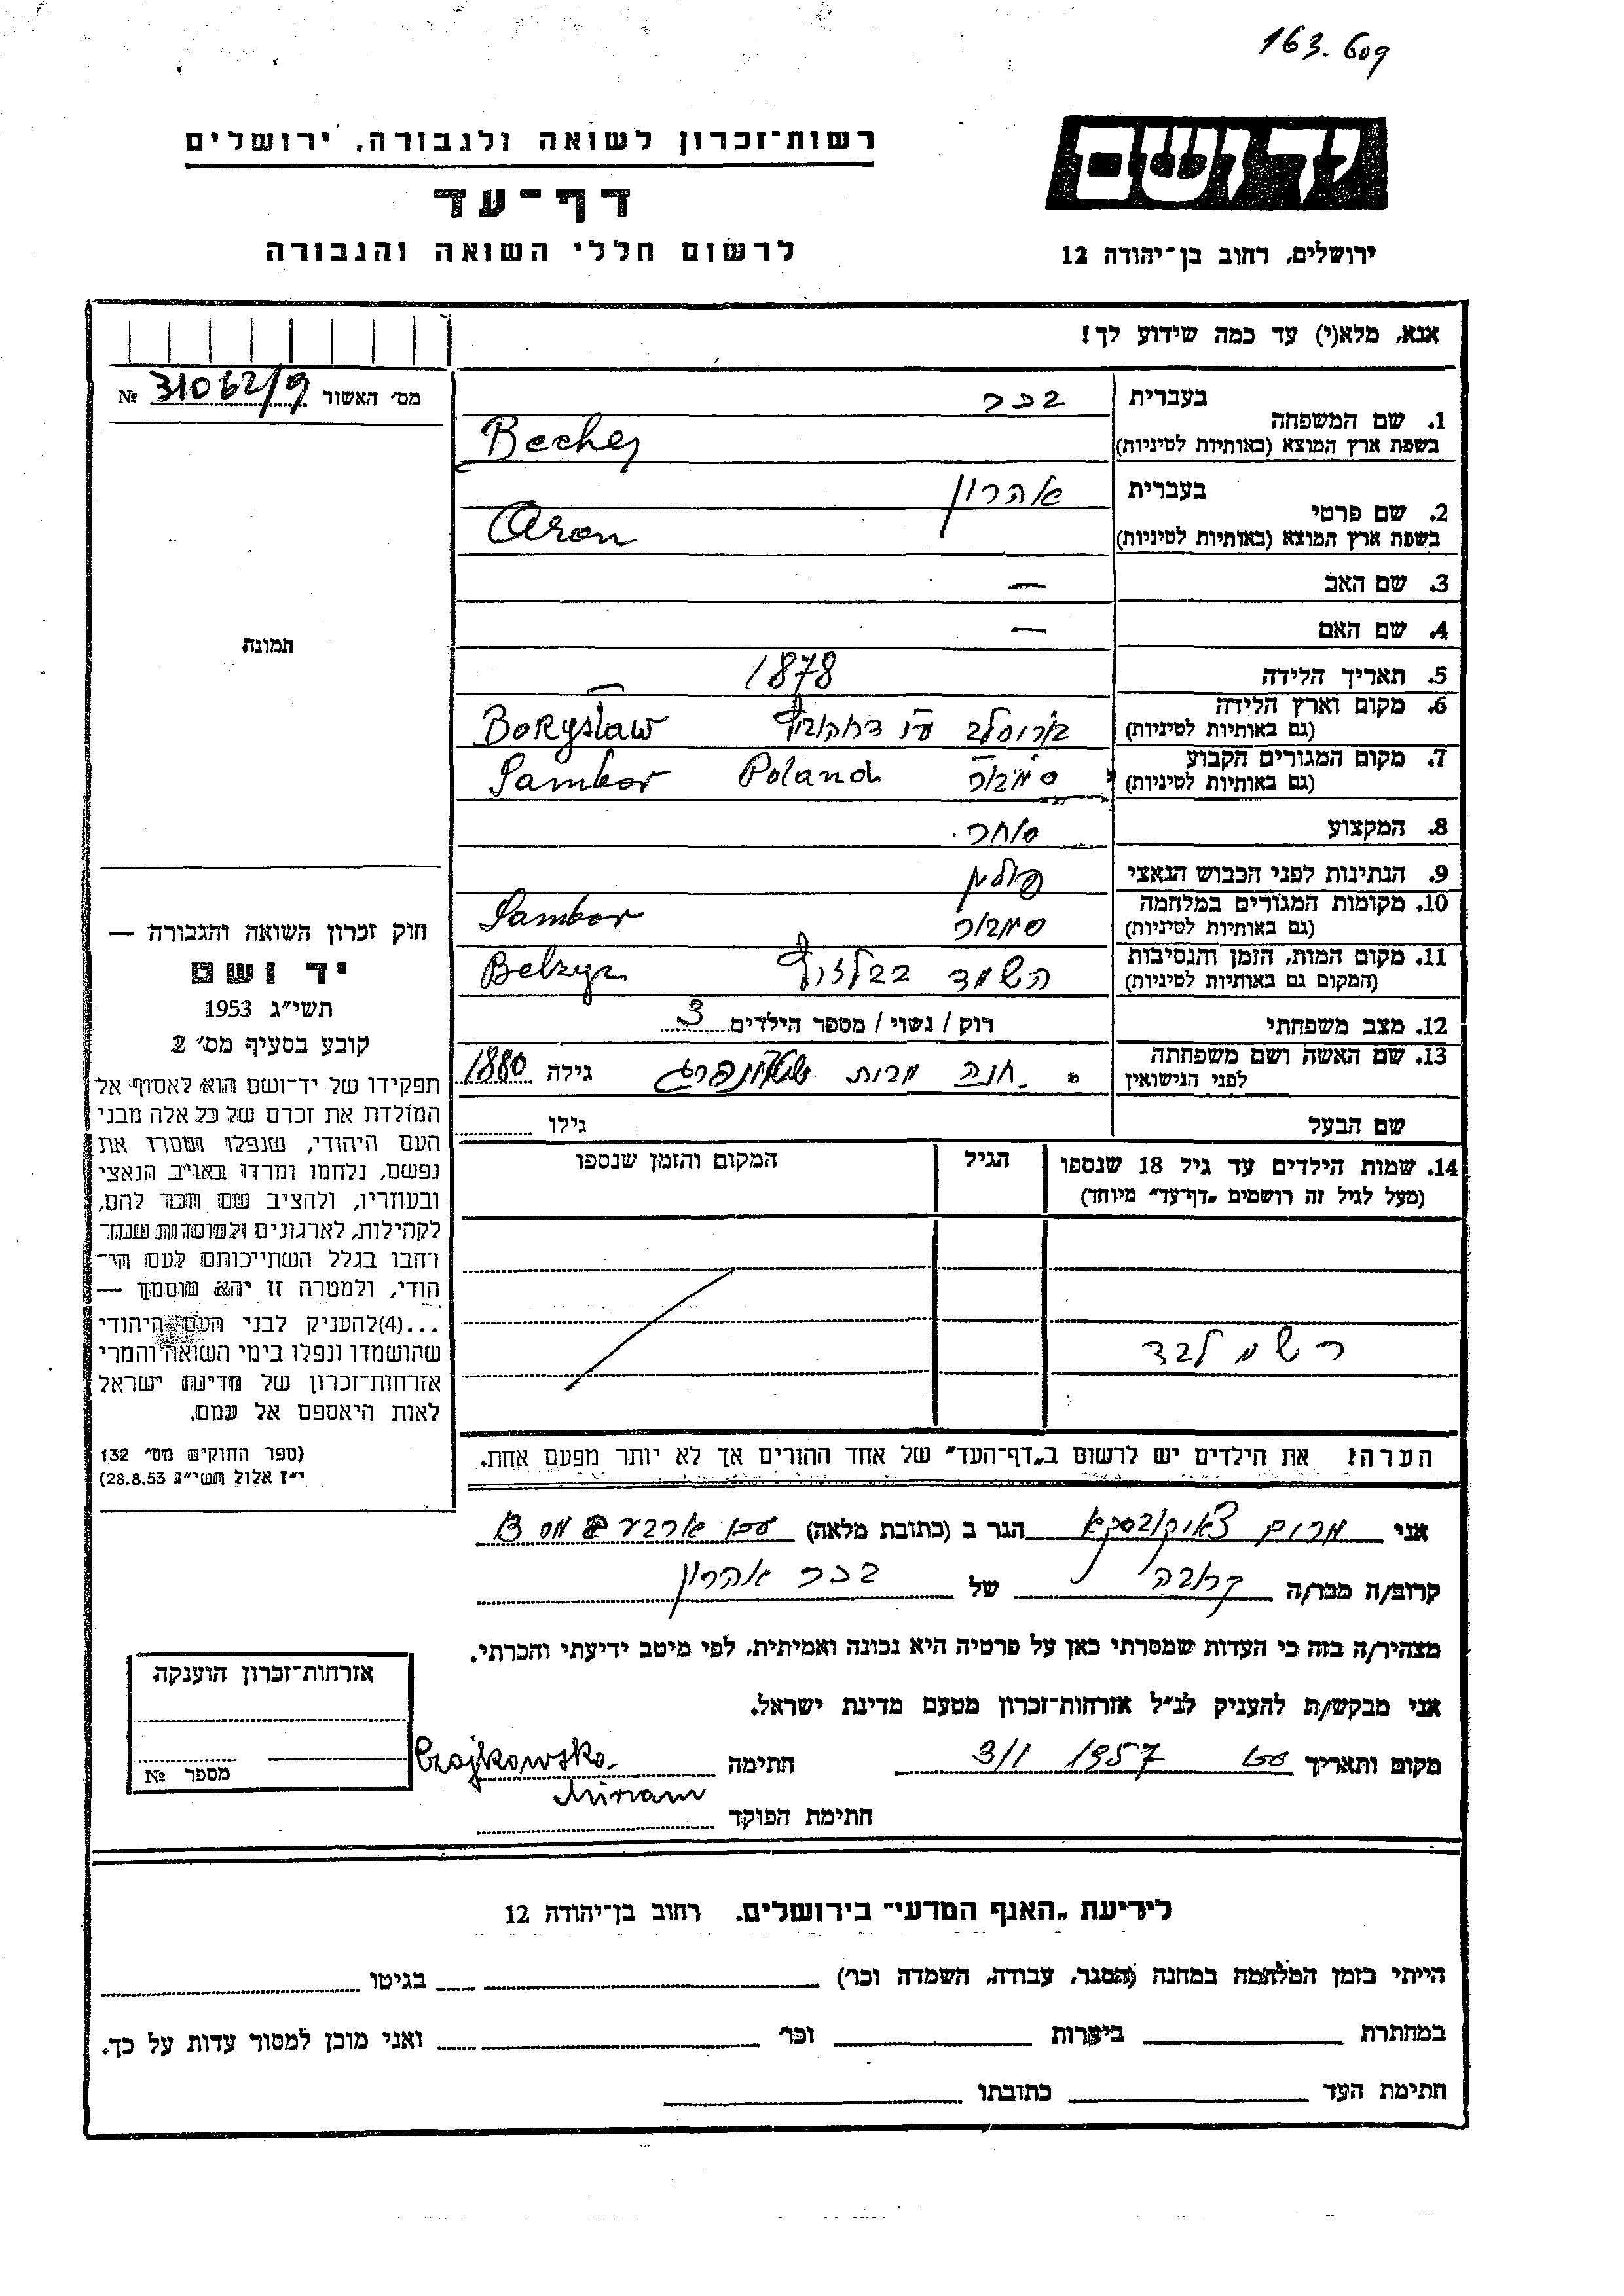 163.609
רשות־זכרון לשואה ולגבורה, ירושלים
דף־עד
לרשום חללי השואה והגבורה
יד ושם
ירושלים, רחוב בן־יהודה 12
אנא, מלא(י) עד כמה שידוע לך!
מס׳ האשור 31062/9 №
תמונה
חוק זכרון השואה והגבורה —
יד ושם
תשי״ג 1953
קובע בסעיף מס׳ 2
תפקידו של יד־ושם הוא לאסוף אל
המולדת את זכרם של כל אלה מבני
העם היהודי, שנפלו ומסרו את
נפשם, נלחמו ומרדו באויב הנאצי
ובעוזריו, ולהציב שם וזכר להם,
לקהילות, לארגונים ולמוסדות שנח־
רחבו בגלל השתייכותם לעם הי־
הודי, ולמטרה זו יהא מוסמך —
...(4)להעניק לבני העם היהודי
שהושמדו ונפלו בימי השואה והמרי
אזרחות־זכרון של מדינת ישראל
לאות היאספם אל עמם.
(ספר החוקים מס׳ 132
י״ז אלול תשי״ג 28.8.53)
בעברית בכר
1. שם המשפחה
בשפת ארץ המוצא (באותיות לטיניות) Becher
בעברית אהרון
2. שם פרטי
בשפת ארץ המוצא (באותיות לטיניות) Aron
3. שם האב —
4. שם האם —
5. תאריך הלידה 1878
6. מקום וארץ הלידה
(גם באותיות לטיניות) Borysław
7. מקום המגורים הקבוע
(גם באותיות לטיניות) סמבור Poland Sambor
8. המקצוע סוחר.
9. הנתינות לפני הכבוש הנאצי פולין
10. מקומות המגורים במלחמה
(גם באותיות לטיניות) סמבור Sambor
11. מקום המות, הזמן והנסיבות
(המקום גם באותיות לטיניות) השמד בבלזץ Belzyc
12. מצב משפחתי רוק / נשוי / מספר הילדים 3
13. שם האשה ושם משפחתה
לפני הנישואין חנה מבית גילה 1880
שם הבעל גילו
14. שמות הילדים עד גיל 18 שנספו הגיל המקום והזמן שנספו
(מעל לגיל זה רושמים „דף־עד״ מיוחד)
רשם לבד
הערה! את הילדים יש לרשום ב„דף־העד״ של אחד ההורים אך לא יותר מפעם אחת.
אני מרים צ'ייקובסקא הגר ב (כתובת מלאה) עכו
קרוב/ה מכר/ה קרובה של בכר אהרון
מצהיר/ה בזה כי העדות שמסרתי כאן על פרטיה היא נכונה ואמיתית, לפי מיטב ידיעתי והכרתי.
אני מבקש/ת להעניק לנ״ל אזרחות־זכרון מטעם מדינת ישראל.
מקום ותאריך עכו 3/1 1957 חתימה Czajkowska
Miriam
חתימת הפוקד
אזרחות־זכרון הוענקה
מספר №
לידיעת „האגף המדעי״ בירושלים. רחוב בן־יהודה 12
הייתי בזמן המלחמה במחנה (הסגר, עבודה, השמדה וכו׳) בגיטו
במחתרת ביערות וכו׳ ואני מוכן למסור עדות על כך.
חתימת העד כתובתו